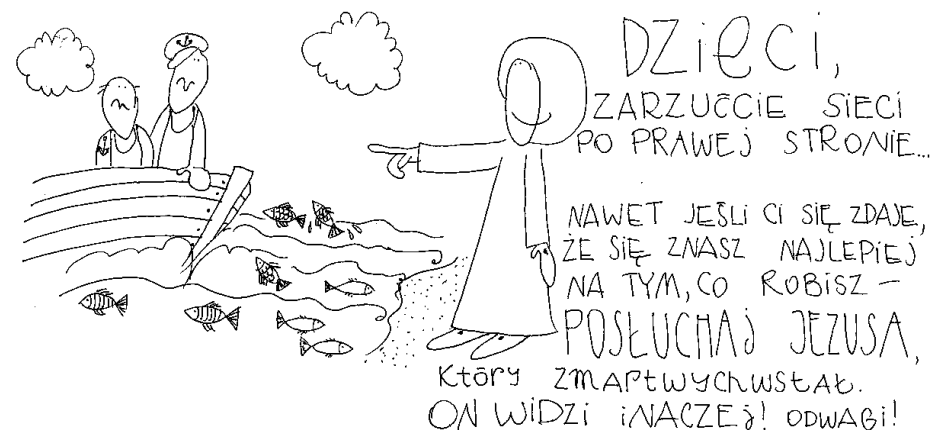 DZIECI,
ZARZUĆCIE SIECI
PO PRAWEJ STRONIE...
NAWET JEŚLI CI SIĘ ZDAJE,
ŻE SIĘ ZNASZ NAJLEPIEJ
NA TYM, CO ROBISZ –
POSŁUCHAJ JEZUSA,
KTÓRY ZMARTWYCHWSTAŁ.
ON WIDZI INACZEJ! ODWAGI!